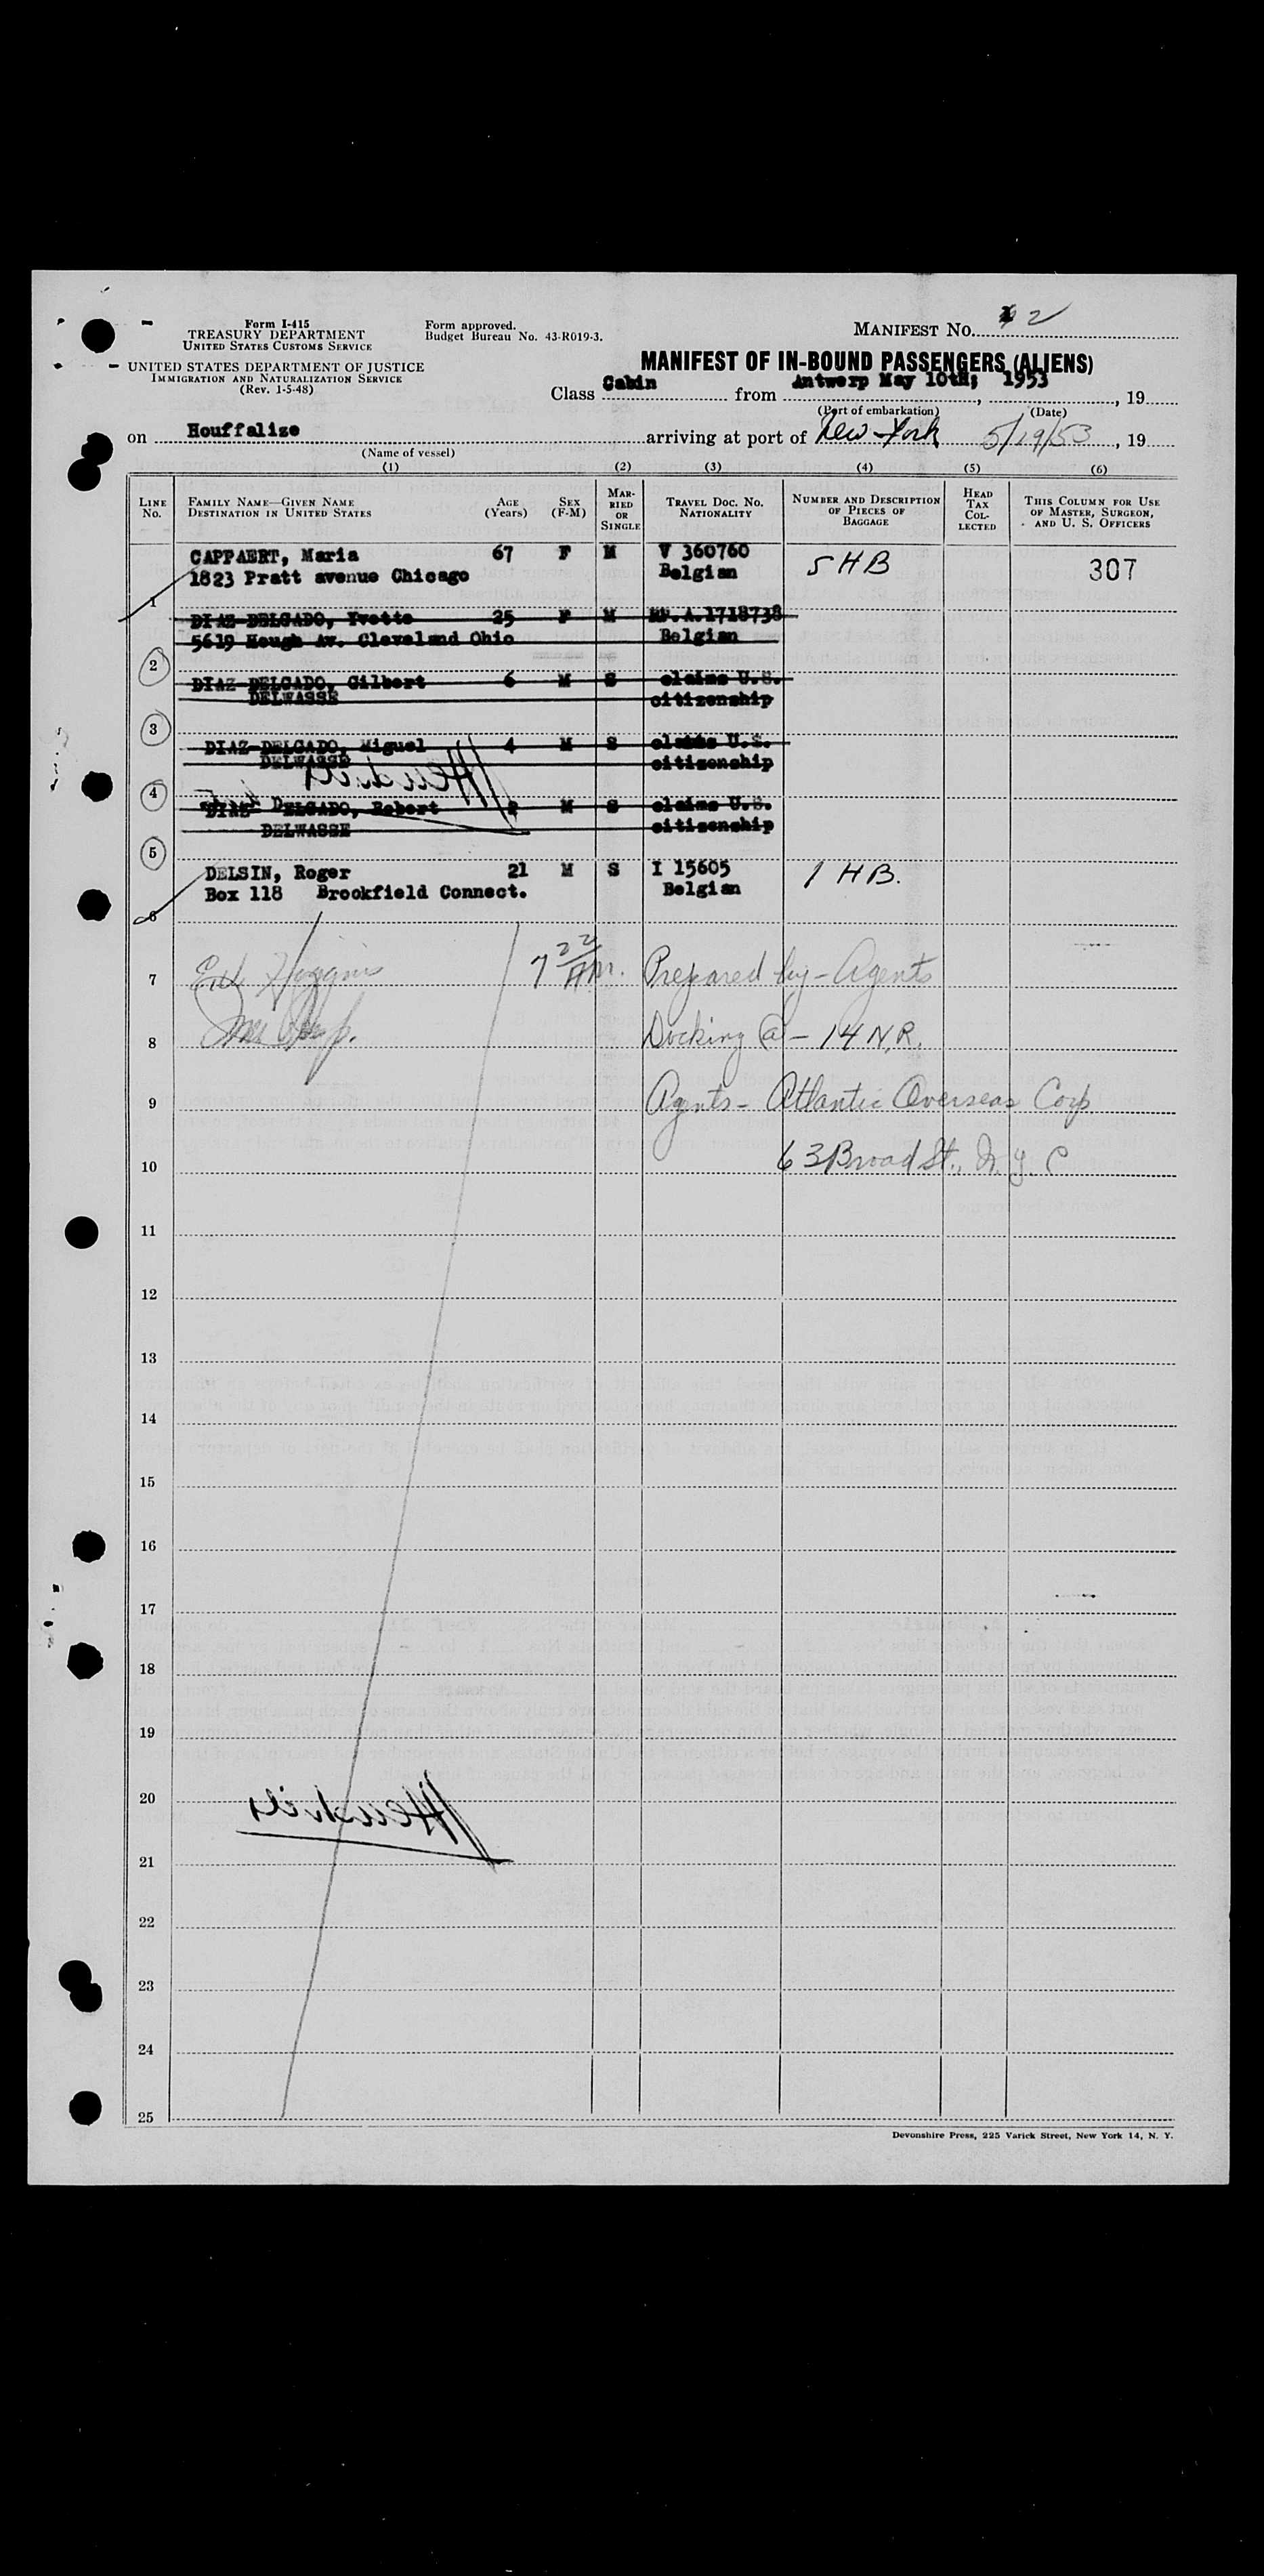 Form I-415
TREASURY DEPARTMENT
UNITED STATES CUSTOMS SERVICE
UNITED STATES DEPARTMENT OF JUSTICE
IMMIGRATION AND NATURALIZATION SERVICE
(Rev. 1-5-48)
Form approved.
Budget Bureau No. 43-R019-3.
MANIFEST No. 2
MANIFEST OF IN-BOUND PASSENGERS (ALIENS)
Class Cabin from Antwerp May 10th; 1953, 19
(Port of embarkation) (Date)
on Houffalize arriving at port of New York 5/19/53, 19
(Name of vessel)
(1) (2) (3) (4) (5) (6)
LINE No.
FAMILY NAME—GIVEN NAME
DESTINATION IN UNITED STATES
AGE (Years)
SEX (F-M)
MARRIED OR SINGLE
TRAVEL DOC. No.
NATIONALITY
NUMBER AND DESCRIPTION OF PIECES OF BAGGAGE
HEAD TAX COLLECTED
THIS COLUMN FOR USE OF MASTER, SURGEON, AND U. S. OFFICERS
CAPPAERT, Maria 67 F M V 360760 5 H B 307
1823 Pratt avenue Chicago Belgian
1
DIAZ-DELGADO, Yvette 25 F M PP.A.1718738
5619 Hough Av. Cleveland Ohio Belgian
2
DIAZ-DELGADO, Gilbert 6 M S claims U.S.
DELWASSE citizenship
3
DIAZ-DELGADO, Miguel 4 M S claims U.S.
DELWASSE citizenship
4
DIAZ DELGADO, Robert 2 M S claims U.S.
DELWASSE citizenship
5
DELSIN, Roger 21 M S I 15605 1 H B.
Box 118 Brookfield Connect. Belgian
6
7 Higgins 7 22 AM. Prepared by - Agents
8 Docking @ - 14 N.R.
9 Agents - Atlantic Overseas Corp
10 63 Broad St., N Y C
11
12
13
14
15
16
17
18
19
20
21
22
23
24
25
Devonshire Press, 225 Varick Street, New York 14, N. Y.